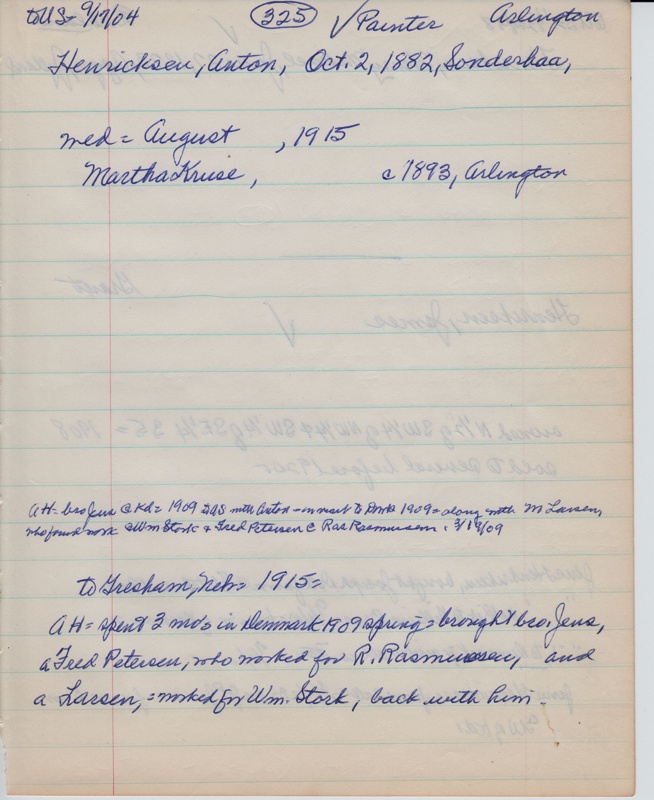 to US- 9/17/04 325 √Painter Arlington
Henricksen, Anton, Oct. 2, 1882, Sonderbaa,
med = August , 1915
Martha Kruse, c 1893, Arlington
AH- bro Jens @ Kd = 1909 with Anton - on visit to Dmk 1909 = along with M Larsen,
who found work @ Wm Stork & Fred Petersen @ Ras Rasmussen.
to Gresham, Neb = 1915 =
AH = spent 3 mo's in Denmark 1909 spring = brought bro. Jens,
a Fred Petersen, who worked for R. Rasmussen, and
a Larsen, = worked for Wm. Stork, back with him.